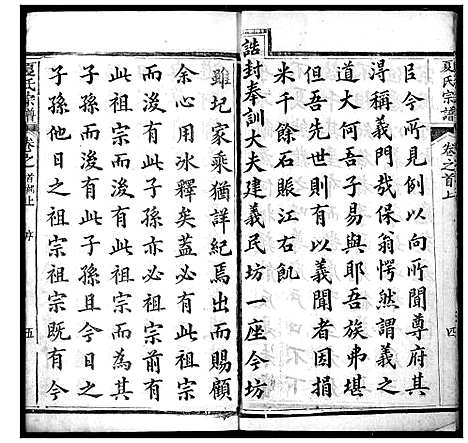 夏氏宗譜
卷之首上
四
臣今所見例以向所聞尊府其
得稱義門哉保翁愕然謂義之
道大何吾子易與耶吾族弗堪
但吾先世則有以義聞者因捐
米千餘石賑江右飢
誥封奉訓大夫建義民坊一座今坊
雖圮家乘猶詳紀焉出而賜顧
余心用冰釋矣蓋必有祖宗
而後有此子孫亦必祖宗前有
此祖宗而後有此祖宗而為其
子孫有此子孫且今日之
子孫他日之祖宗祖宗既有今
夏氏宗譜
卷之首上
序
五